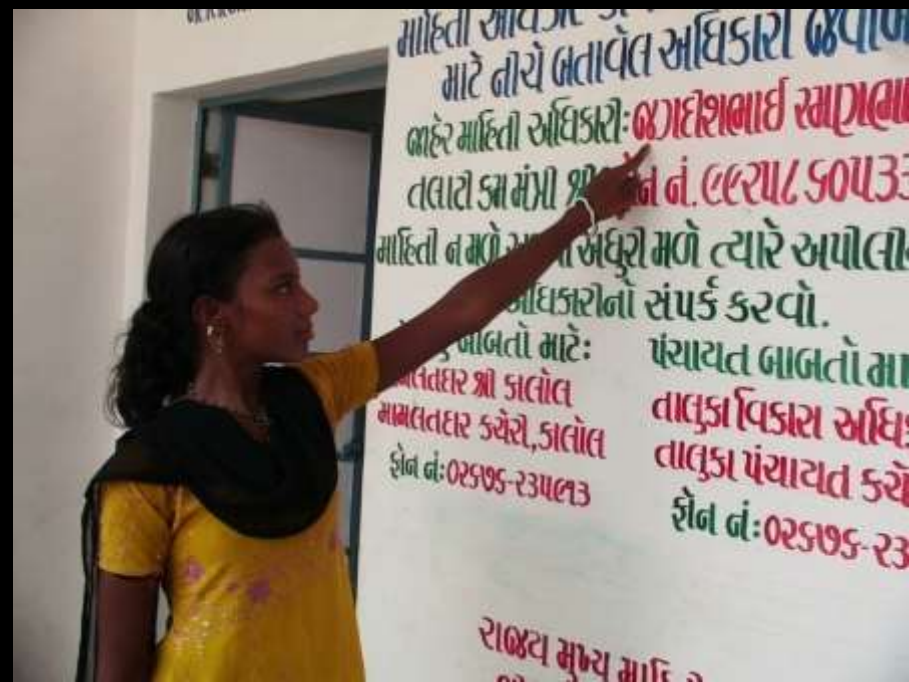 માહિતી
માટે નીચે બતાવેલ અધિકારી
જાહેર માહિતી અધિકારી: જગદીશભાઈ રમણભા
તલાટી કમ મંત્રી શ્રી નં. ૯૯૨૫૮૬૦૫૩૩
માહિતી ન મળે અધુરી મળે ત્યારે અપીલી
અધિકારીનો સંપર્ક કરવો.
બાબતો માટે:
મામલતદાર શ્રી કાલોલ
મામલતદાર કચેરી, કાલોલ
ફોન નં: ૦૨૬૭૬-૨૩૫૯૧૩
પંચાયત બાબતો મા
તાલુકા વિકાસ અધિ
તાલુકા પંચાયત કચે
ફોન નં: ૦૨૬૭૬-૨૩
રાજ્ય મુખ્ય માહિ